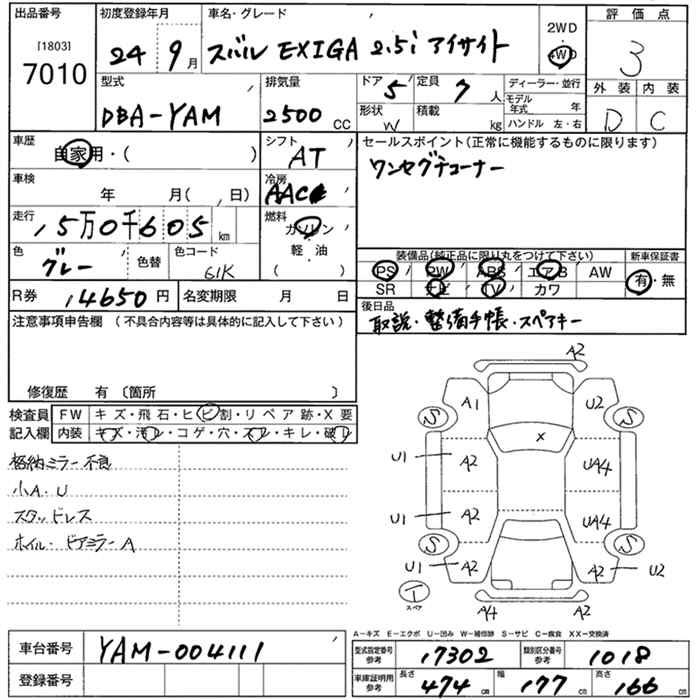 出品番号 初度登録年月 車名・グレード 2WD 評価点
[1803] 4WD
7010 24 9月 スバル EXIGA 2.5i アイサイト 3
型式 排気量 ドア 5 定員 7人 ディーラー・並行 外装 内装
DBA-YAM 2500 CC 形状 W 積載 kg モデル年式 年 D C
ハンドル 左・右
車歴 自家用・( ) シフト AT セールスポイント(正常に機能するものに限ります)
車検 年 月( 、日) 冷房 AAC ワンセグチューナー
走行 5万0千605 km 燃料 ガソリン
色 グレー 色替 色コード 61K 軽・油 ( )
装備品(純正品に限り丸をつけて下さい) 新車保証書
PS PW ABS エアB AW 有・無
SR ナビ TV カワ
R券 14650円 名変期限 月 日 後日品
取説・整備手帳・スペアキー
注意事項申告欄 (不具合内容等は具体的に記入して下さい)
修復歴 有 〔箇所 〕
検査員 FW キズ・飛石・ヒビ割・リペア跡・X要
記入欄 内装 キズ・汚レ・コゲ・穴・スレ・キレ・破レ
格納ミラー不良
小A・U
スタッドレス
ホイル・ドアミラーA
A2
A1 U2
S S
X
U1 A2 UA4
U1 A2 UA4
S S
U1 A2 A2 U2
T
スペア A4 A2
A-キズ E-エクボ U-凹み W-補修跡 S-サビ C-腐食 XX-交換済
車台番号 YAM-004111 型式指定番号 参考 17302 類別区分番号 参考 1018
登録番号 車庫証明用 参考 長さ 474 cm 幅 177 cm 高さ 166 cm